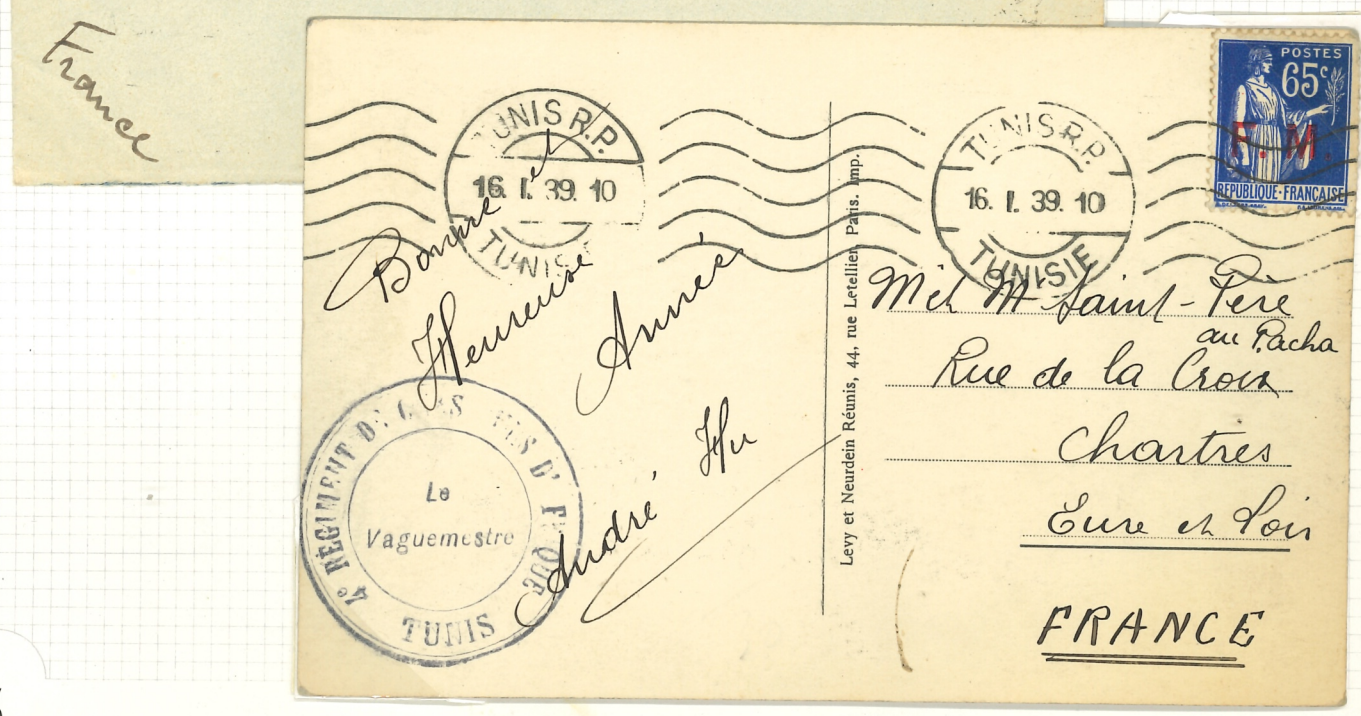 France
TUNIS R.P.
16. I. 39. 10
TUNISIE
TUNIS R.P.
16. I. 39. 10
TUNISIE
POSTES
65c
F. M.
REPUBLIQUE·FRANÇAISE
Bonne et
Heureuse
Année
André Hu
4e REGIMENT DE CHASSEURS D'AFRIQUE
Le
Vaguemestre
TUNIS
Levy et Neurdein Réunis, 44, rue Letellier, Paris. Imp.
M et Me Saint-Père
au Pacha
Rue de la Croix
Chartres
Eure et Loir
FRANCE